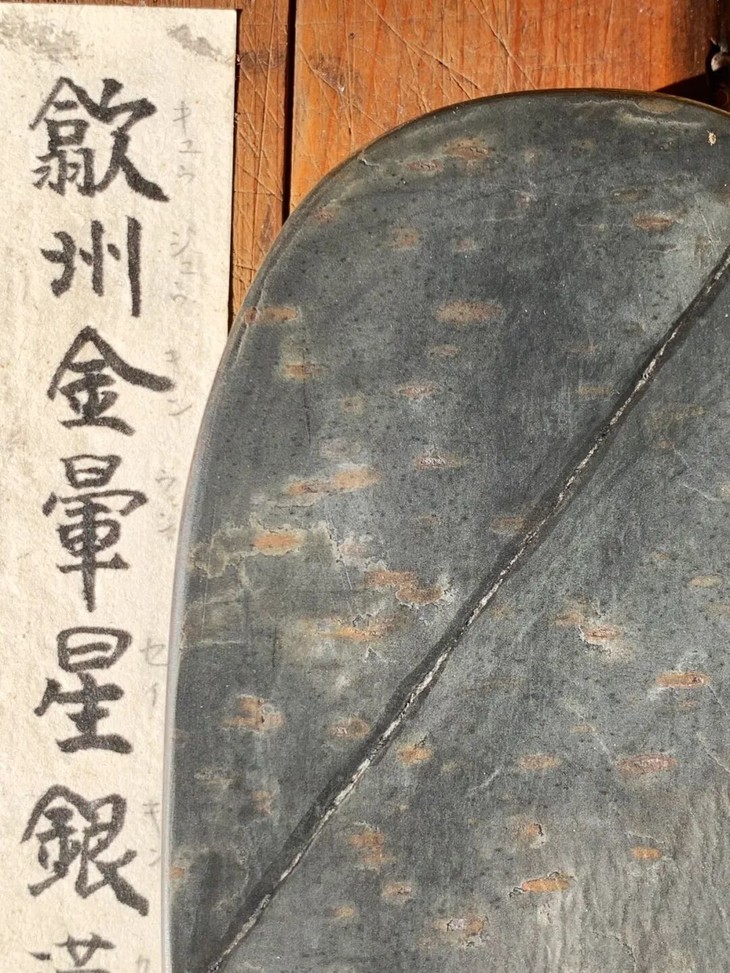 歙州金暈星銀
キュウ ジュウ キン ウン セイ キン